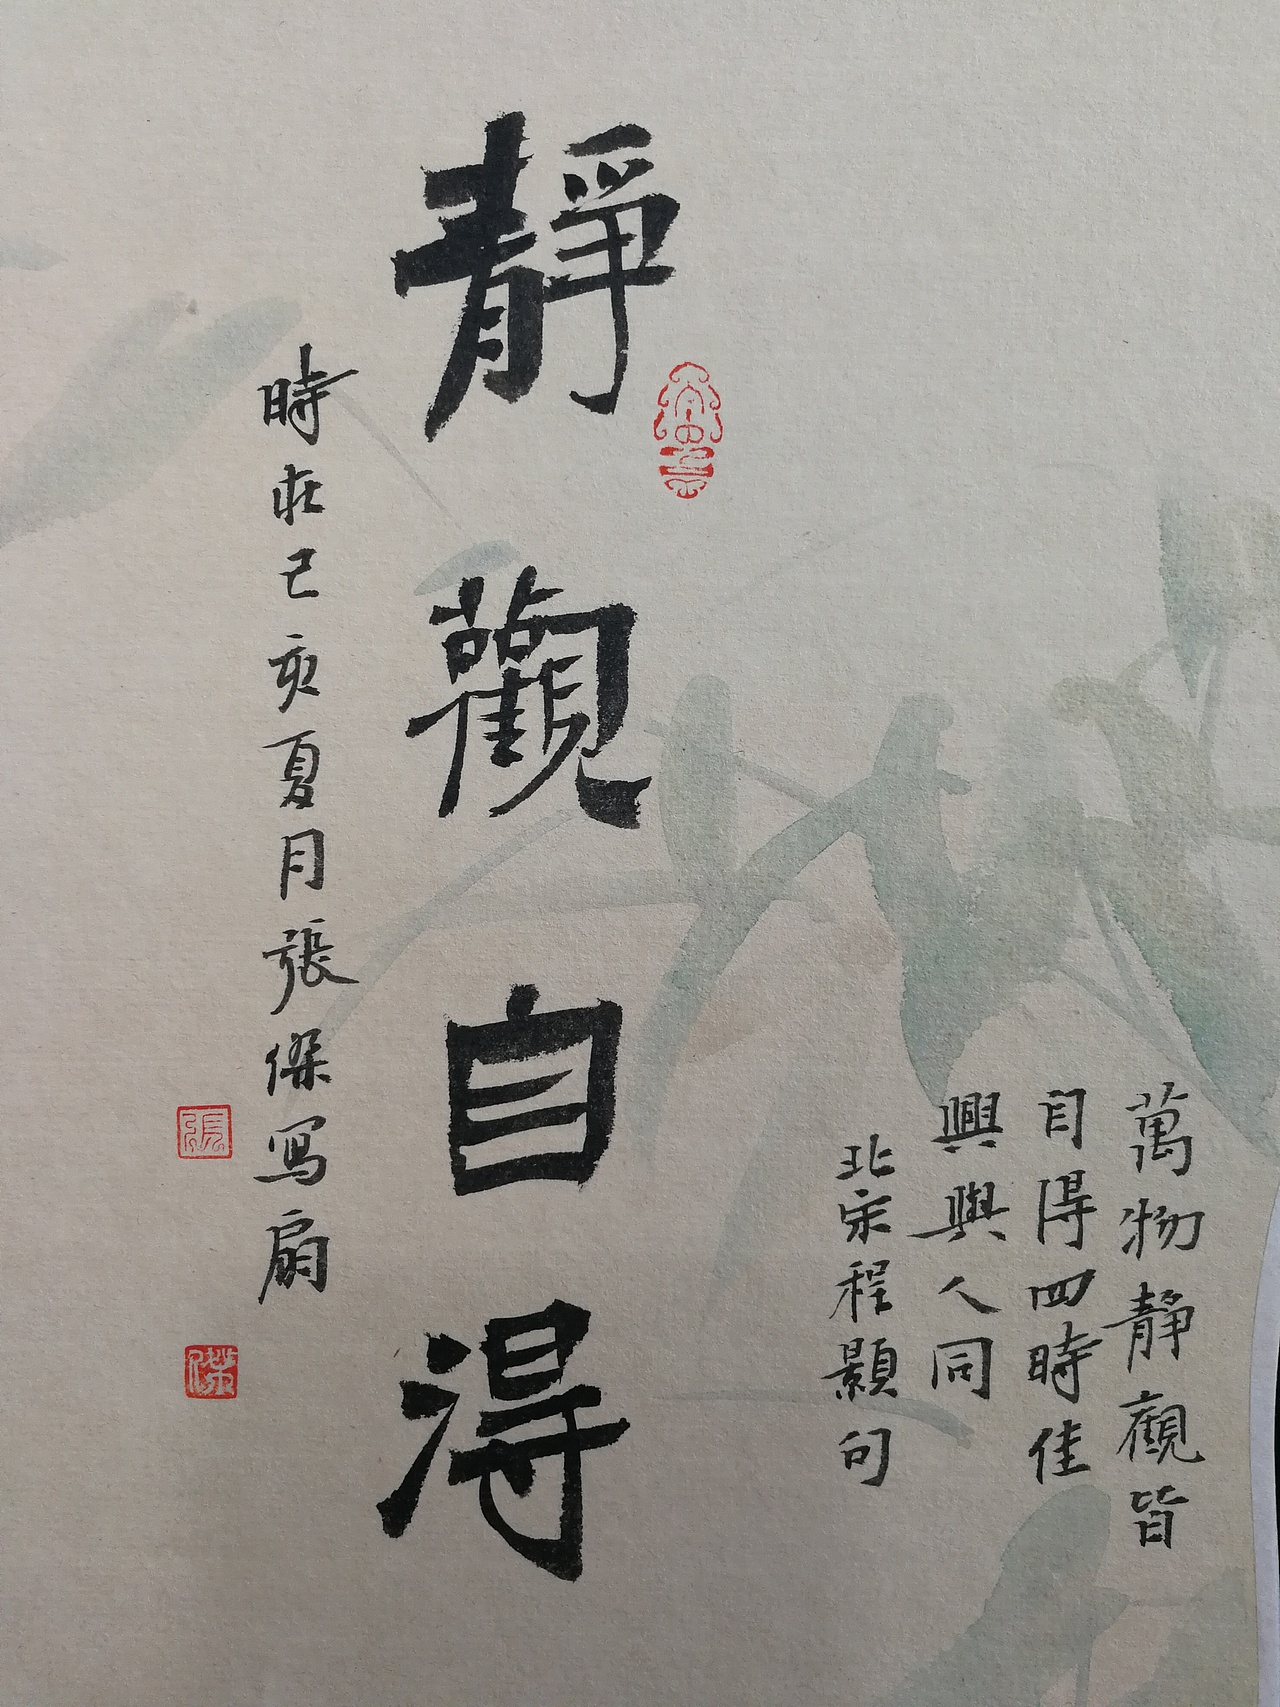 萬物靜觀皆
自得四時佳
興與人同
北宋程顥句
靜觀自得
時在己亥夏月張傑写扇
張
傑